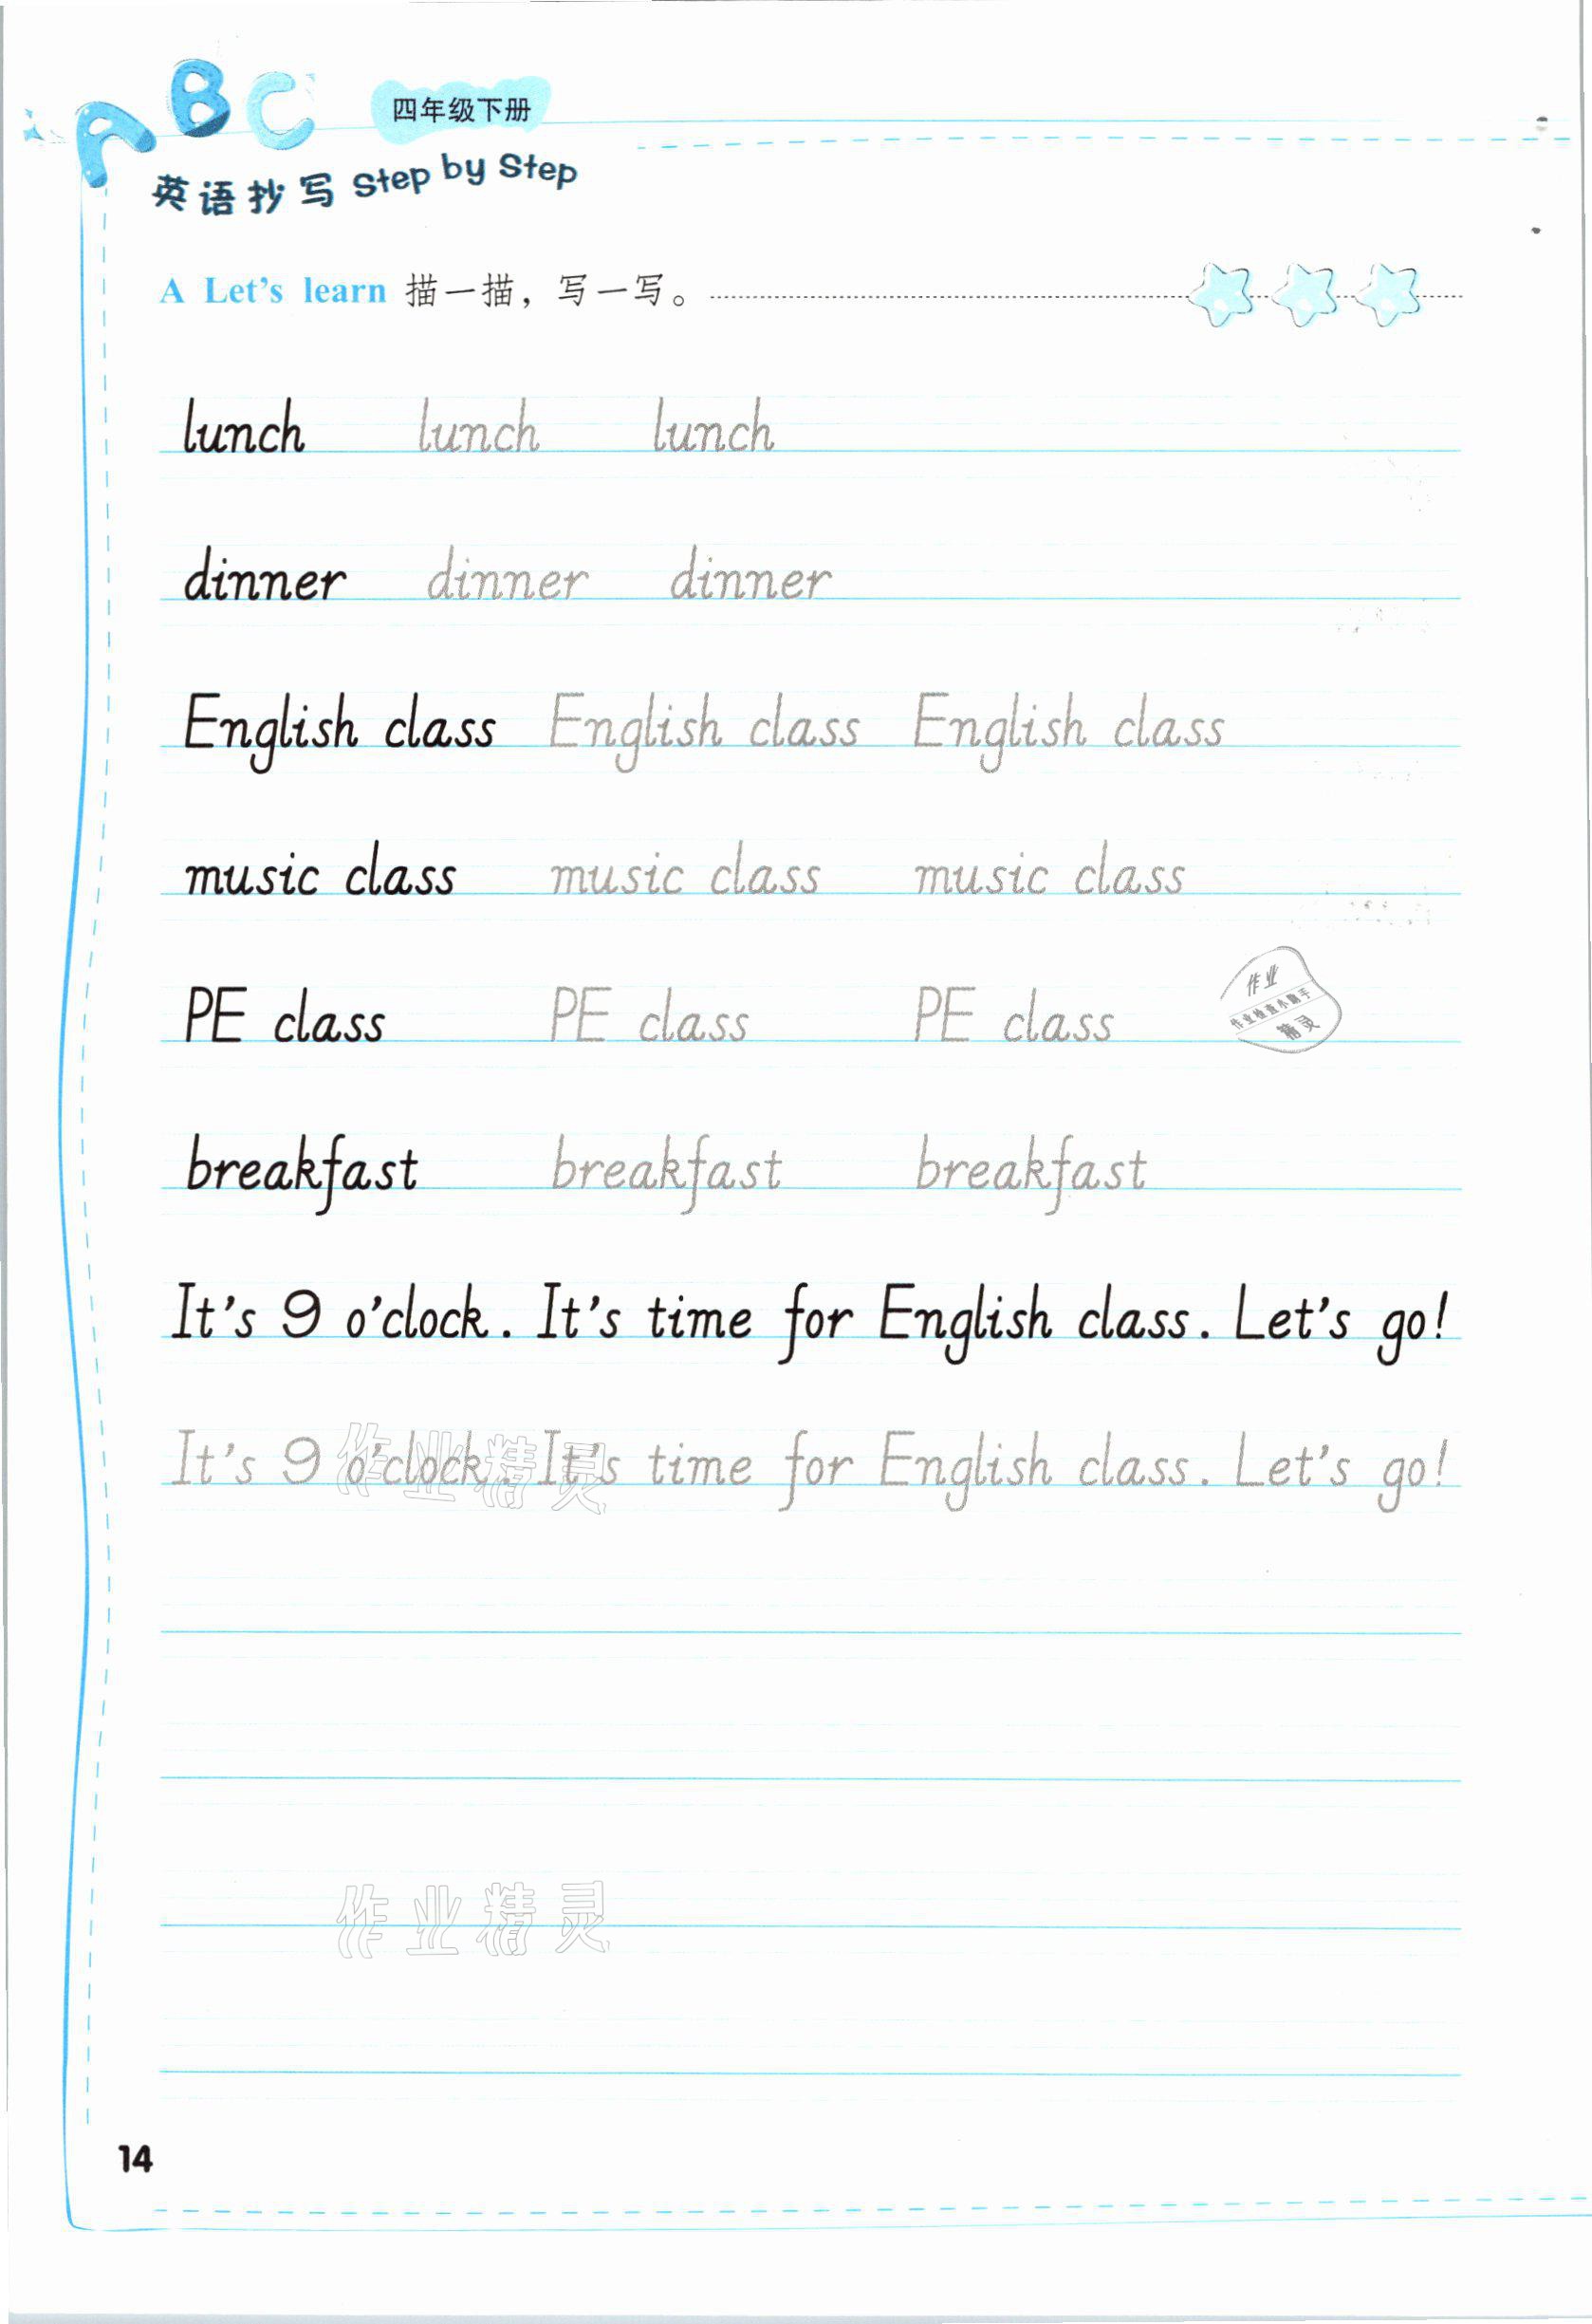 ABC
四年级下册
英语抄写 Step by Step
A Let's learn 描一描，写一写。
lunch lunch lunch
dinner dinner dinner
English class English class English class
music class music class music class
PE class PE class PE class
作业
作业检查小助手
精灵
breakfast breakfast breakfast
It's 9 o'clock. It's time for English class. Let's go!
It's 9 o'clock. It's time for English class. Let's go!
作业精灵
作业精灵
14